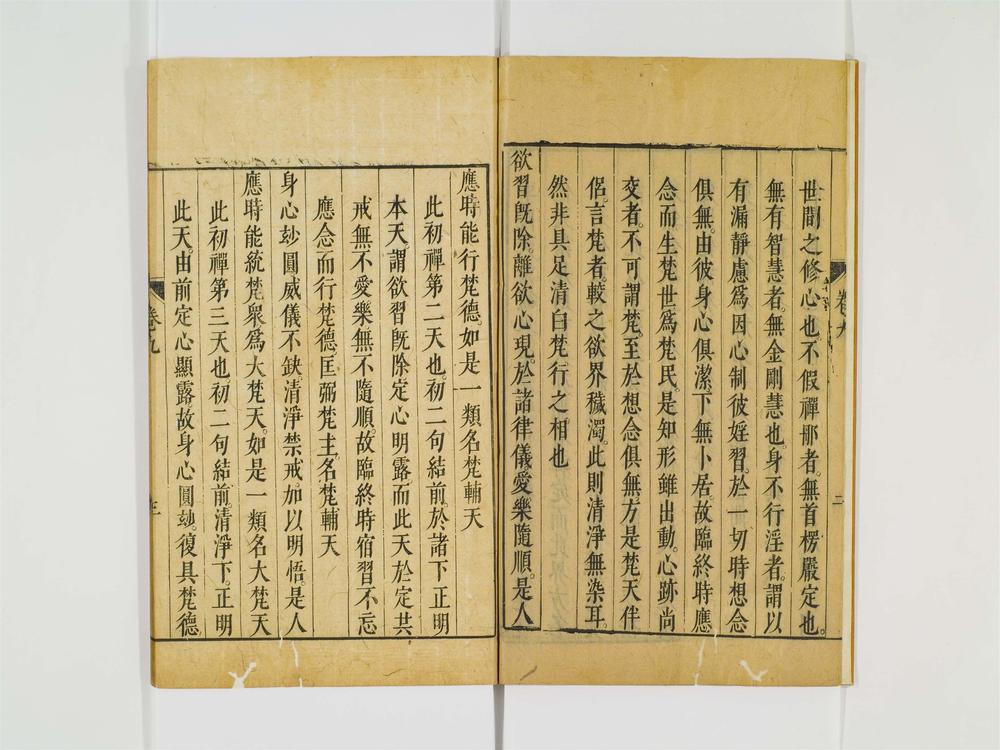 世間之修心也不假禪那者無首楞嚴定也
無有智慧者無金剛慧也身不行淫者謂以
有漏靜慮爲因心制彼婬習於一切時想念
俱無由彼身心俱潔下無卜居故臨終時應
念而生梵世爲梵民是知形雖出動心跡尚
交者不可謂梵至於想念俱無方是梵天伴
侶言梵者較之欲界穢濁此則清淨無染耳
然非具足清白梵行之相也
欲習既除離欲心現於諸律儀愛樂隨順是人
卷九
二
應時能行梵德如是一類名梵輔天
此初禪第二天也初二句結前於諸下正明
本天謂欲習既除定心明露而此天於定共
戒無不愛樂無不隨順故臨終時宿習不忘
應念而行梵德匡弼梵主名梵輔天
身心玅圓威儀不缺清淨禁戒加以明悟是人
應時能統梵衆爲大梵天如是一類名大梵天
此初禪第三天也初二句結前清淨下正明
此天由前定心顯露故身心圓玅復具梵德
卷九
三